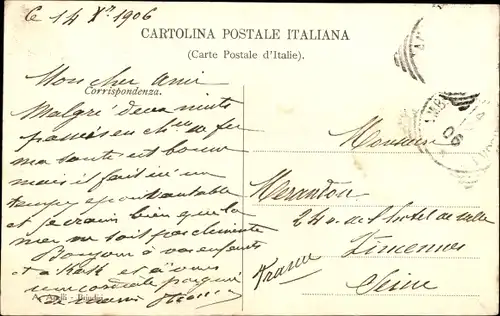 le 14 Xre 1906
CARTOLINA POSTALE ITALIANA
(Carte Postale d'Italie).
Mon cher ami
Corrispondenza.
Malgré deux nuits
passées en ch. de fer
ma santé est bonne
mais il fait ici un
temps épouvantable
et je crains bien que la
mer ne soit pas clémente
Bonjour à vos enfants
et à vous
une cordiale poignée
de main
A. - Brindisi
Monsieur
24 r. de l'hotel de ville
Vincennes
Seine
France
06